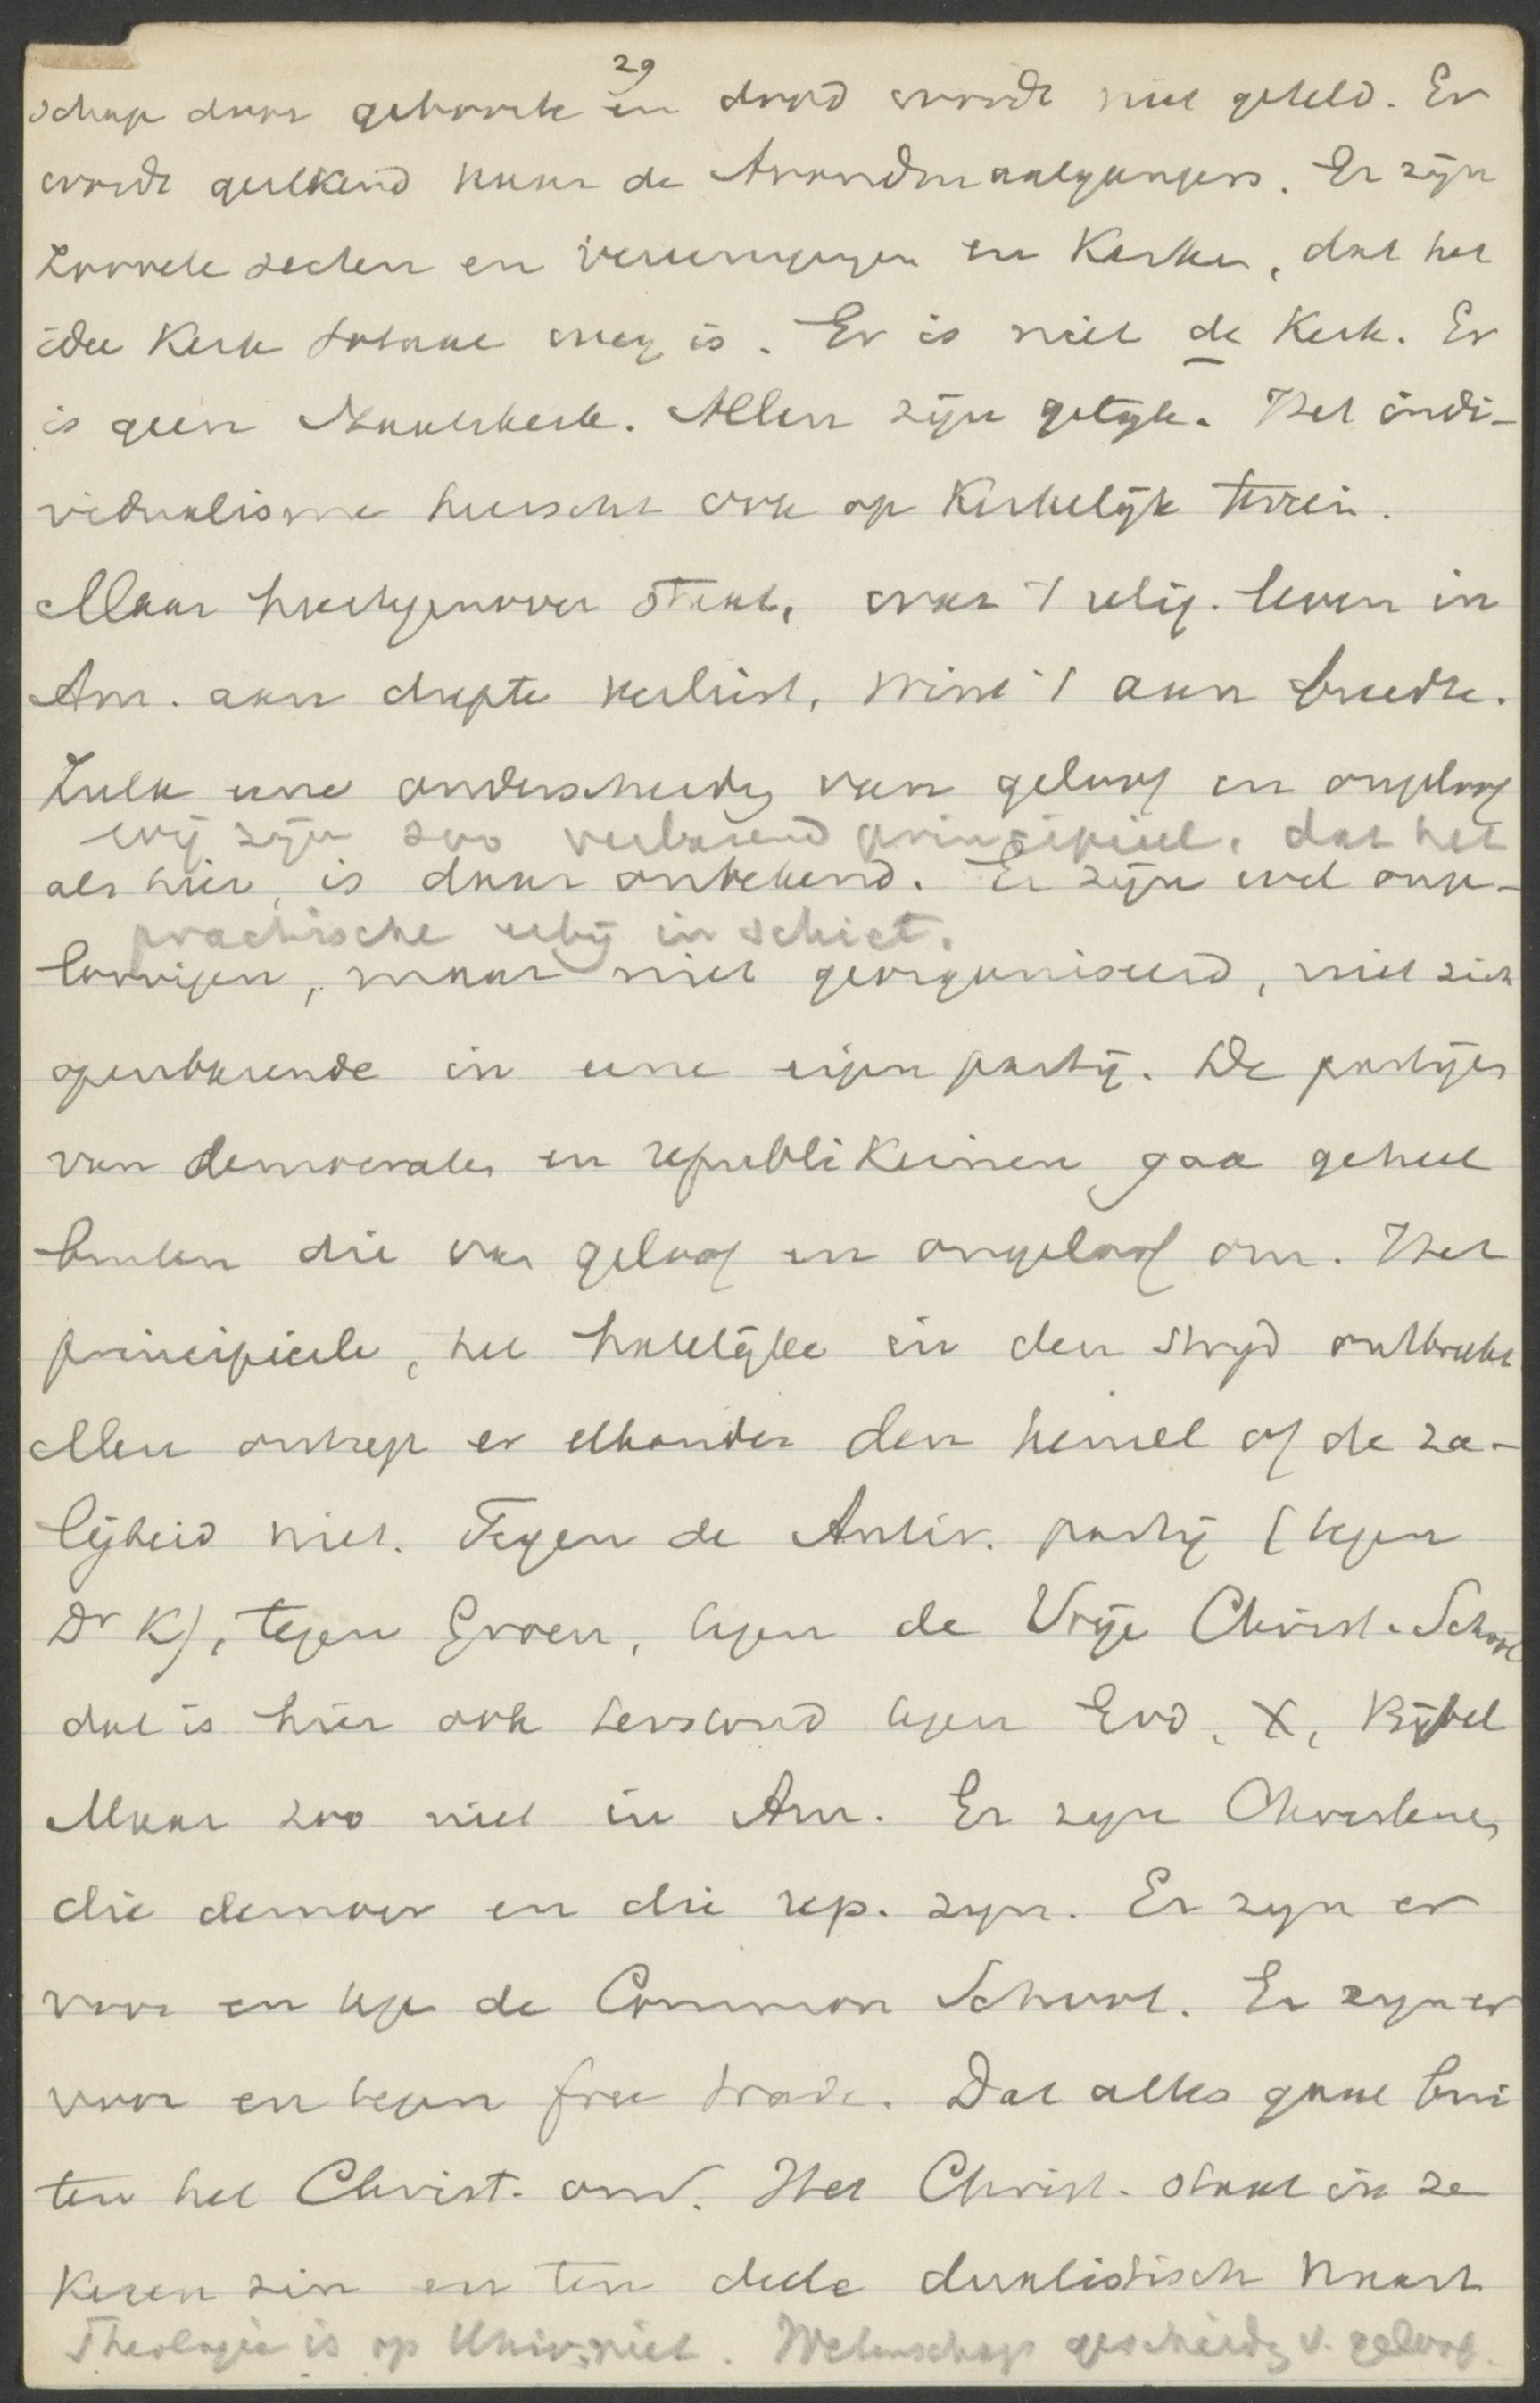 29
schap door geboorte en doop wordt niet geteld. Er
wordt gerekend naar de Avondmaalgangers. Er zijn
zoovele secten en vereenigingen en Kerken, dat het
idee Kerk totaal weg is. Er is niet de Kerk. Er
is geen Staatskerk. Allen zijn gelijk. Het indi-
vidualisme heerscht ook op Kerkelijk terrein.
Maar hiertegenover staat, wat 't relig. leven in
Am. aan diepte verliest, wint 't aan breedte.
Zulk eene onderscheiding van geloof en ongeloof
wij zijn zoo verbazend principieel, dat het
als hier, is daar onbekend. Er zijn wel onge-
practische erbij in schiet.
loovigen, maar niet georganiseerd, niet zich
openbarende in eene eigen partij. De partijen
van democraten en republikeinen gaa geheel
buiten die van geloof en ongeloof om. Het
principieele, het hatelijke in den strijd ontbreekt
Men ontzegt er elkander den hemel of de za-
ligheid niet. Tegen de Antir. partij (tegen
Dr K), tegen Groen, tegen de Vrije Christ. School
dat is hier ook terstond tegen God, X, Bijbel
Maar zoo niet in Am. Er zijn Christenen
die democr en die rep. zijn. Er zijn er
voor en tege de Common School. Er zijn er
voor en tegen free trade. Dat alles gaat bui
ten het Christ. om. Het Christ. staat in ze
keren zin en ten deele dualistisch naast
Theologie is op Univ. niet. Wetenschap gescheidg v. geloof.